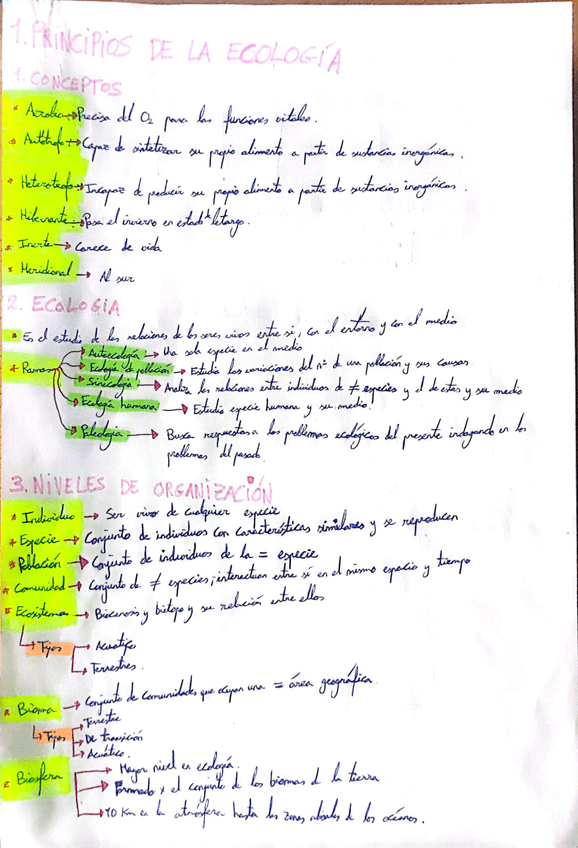 1. PRINCIPIOS DE LA ECOLOGÍA
1. CONCEPTOS
* Aerobia → Precisa del O₂ para las funciones vitales.
* Autótrofo → Capaz de sintetizar su propio alimento a partir de sustancias inorgánicas.
* Heterótrofo → Incapaz de producir su propio alimento a partir de sustancias inorgánicas.
* Hibernante → Pasa el invierno en estado de letargo.
* Inerte → Carece de vida
* Meridional → Al sur
2. ECOLOGIA
* Es el estudio de las relaciones de los seres vivos entre sí, con el entorno y con el medio.
* Ramas
→ Autoecología → Una sola especie en el medio
→ Ecología d población → Estudia las variaciones del nº de una población y sus causas.
→ Sinicología → Analiza las relaciones entre individuos de ≠ especies y el de estas y su medio
→ Ecología humana → Estudia especie humana y su medio.
→ Paleología → Busca respuestas a los problemas ecológicos del presente indagando en los
problemas del pasado.
3. NIVELES DE ORGANIZACIÓN
* Individuo → Ser vivo de cualquier especie
* Especie → Conjunto de individuos con características similares y se reproducen
* Población → Conjunto de individuos de la = especie
* Comunidad → Conjunto de ≠ especies; interactuan entre sí en el mismo espacio y tiempo
* Ecosistema → Biocenosis y biotopo y su relación entre ellos
→ Tipos → Acuático
→ Terrestres.
* Bioma → Conjunto de comunidades que ocupan una = área geográfica.
→ Tipos → Terrestre
→ De transición
→ Acuático.
* Biosfera → Mayor nivel en ecología.
→ Formado x el conjunto de los biomas d la tierra
→ 40 Km en la atmósfera hasta las zonas abisales de los océanos.